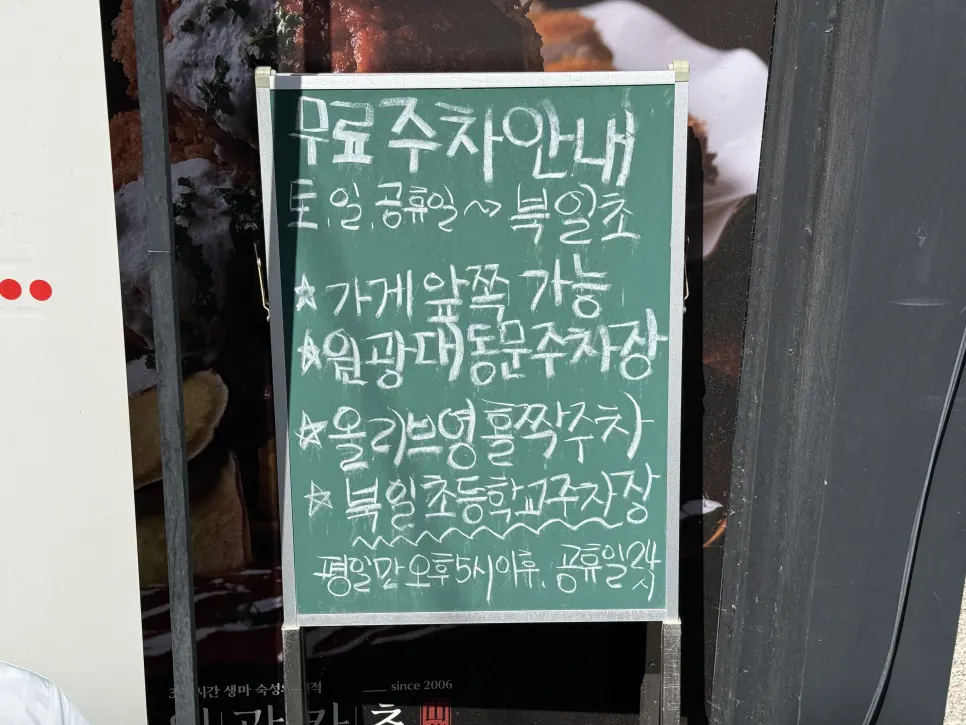 무료주차안내
토.일.공휴일~> 북일초
☆ 가게 앞쪽 가능
☆ 원광대동문주차장
☆ 올리브영 홀짝주차
☆ 북일초등학교주차장
평일만 오후5시이후. 공휴일24시
시간 생마 숙성의
since 2006